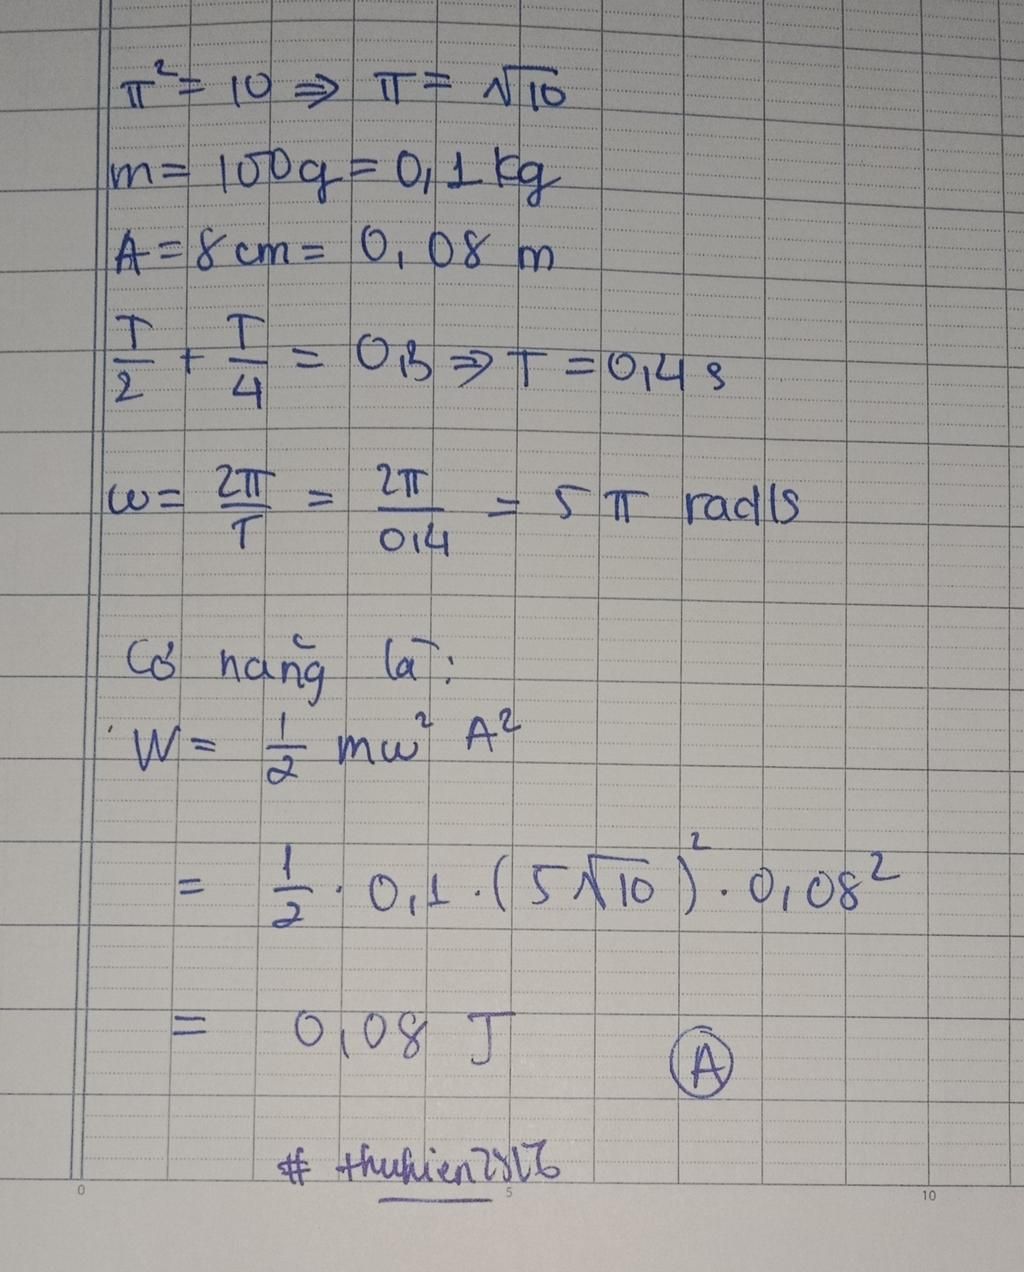 π² = 10 ⇒ π = √10
m = 100g = 0,1 kg
A = 8 cm = 0,08 m
T/2 + T/4 = 0,3 ⇒ T = 0,4 s
ω = 2π/T = 2π/0,4 = 5π rad/s
Cơ năng là:
W = 1/2 mω² A²
= 1/2 . 0,1 . (5√10)² . 0,08²
= 0,08 J
A
0 5 10